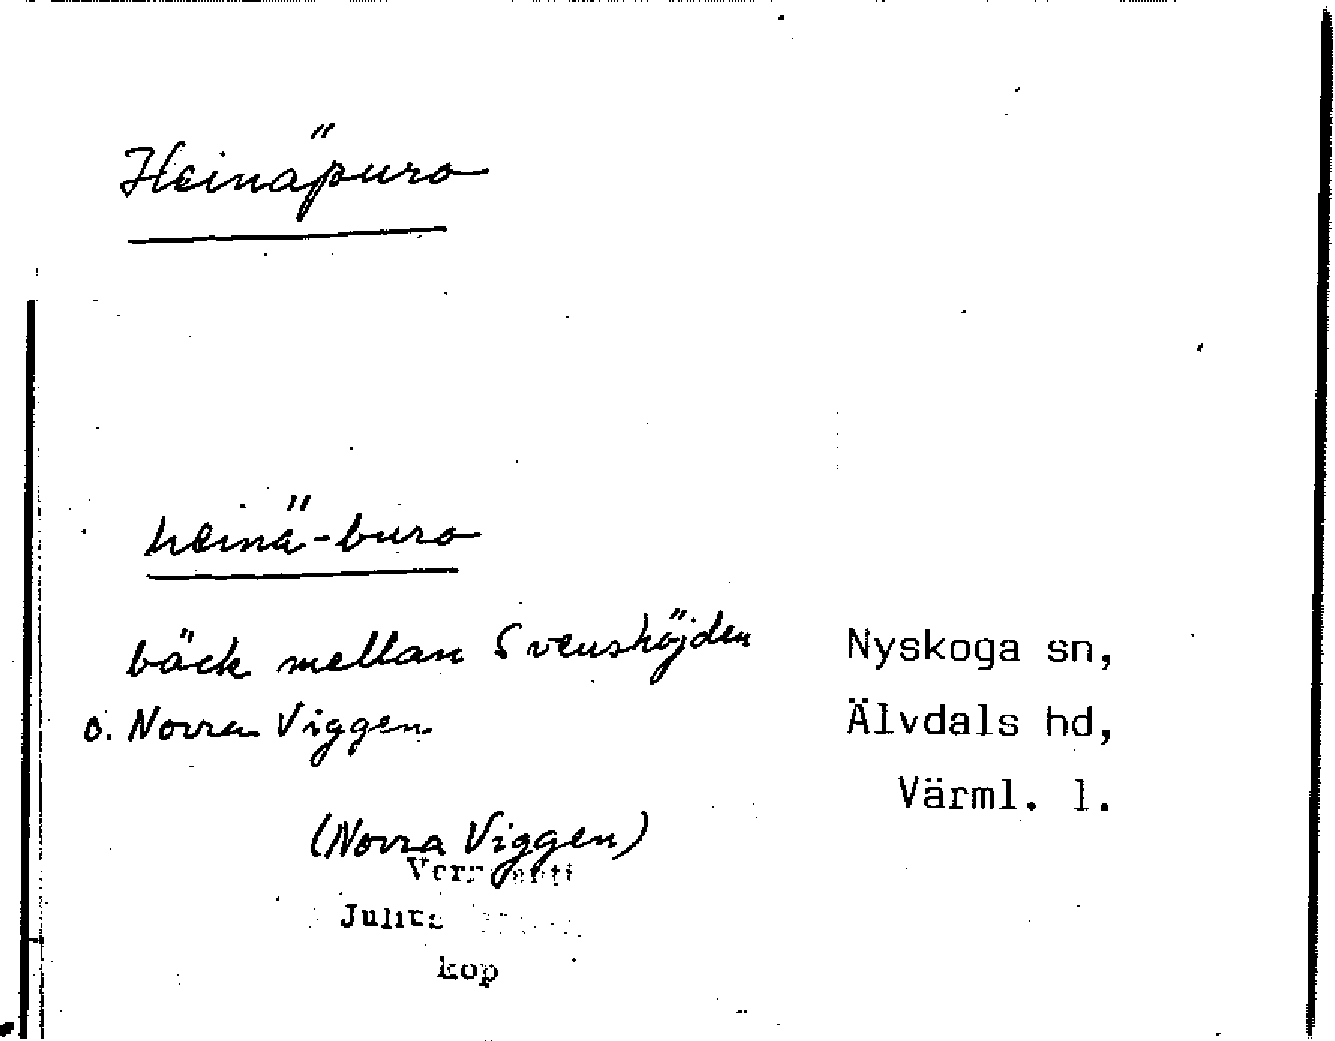 Heinäpuro
heinä-buro
bäck mellan Svenshöjden
o. Norra Viggen.
Nyskoga sn,
Älvdals hd,
Värml. l.
(Norra Viggen)
kop